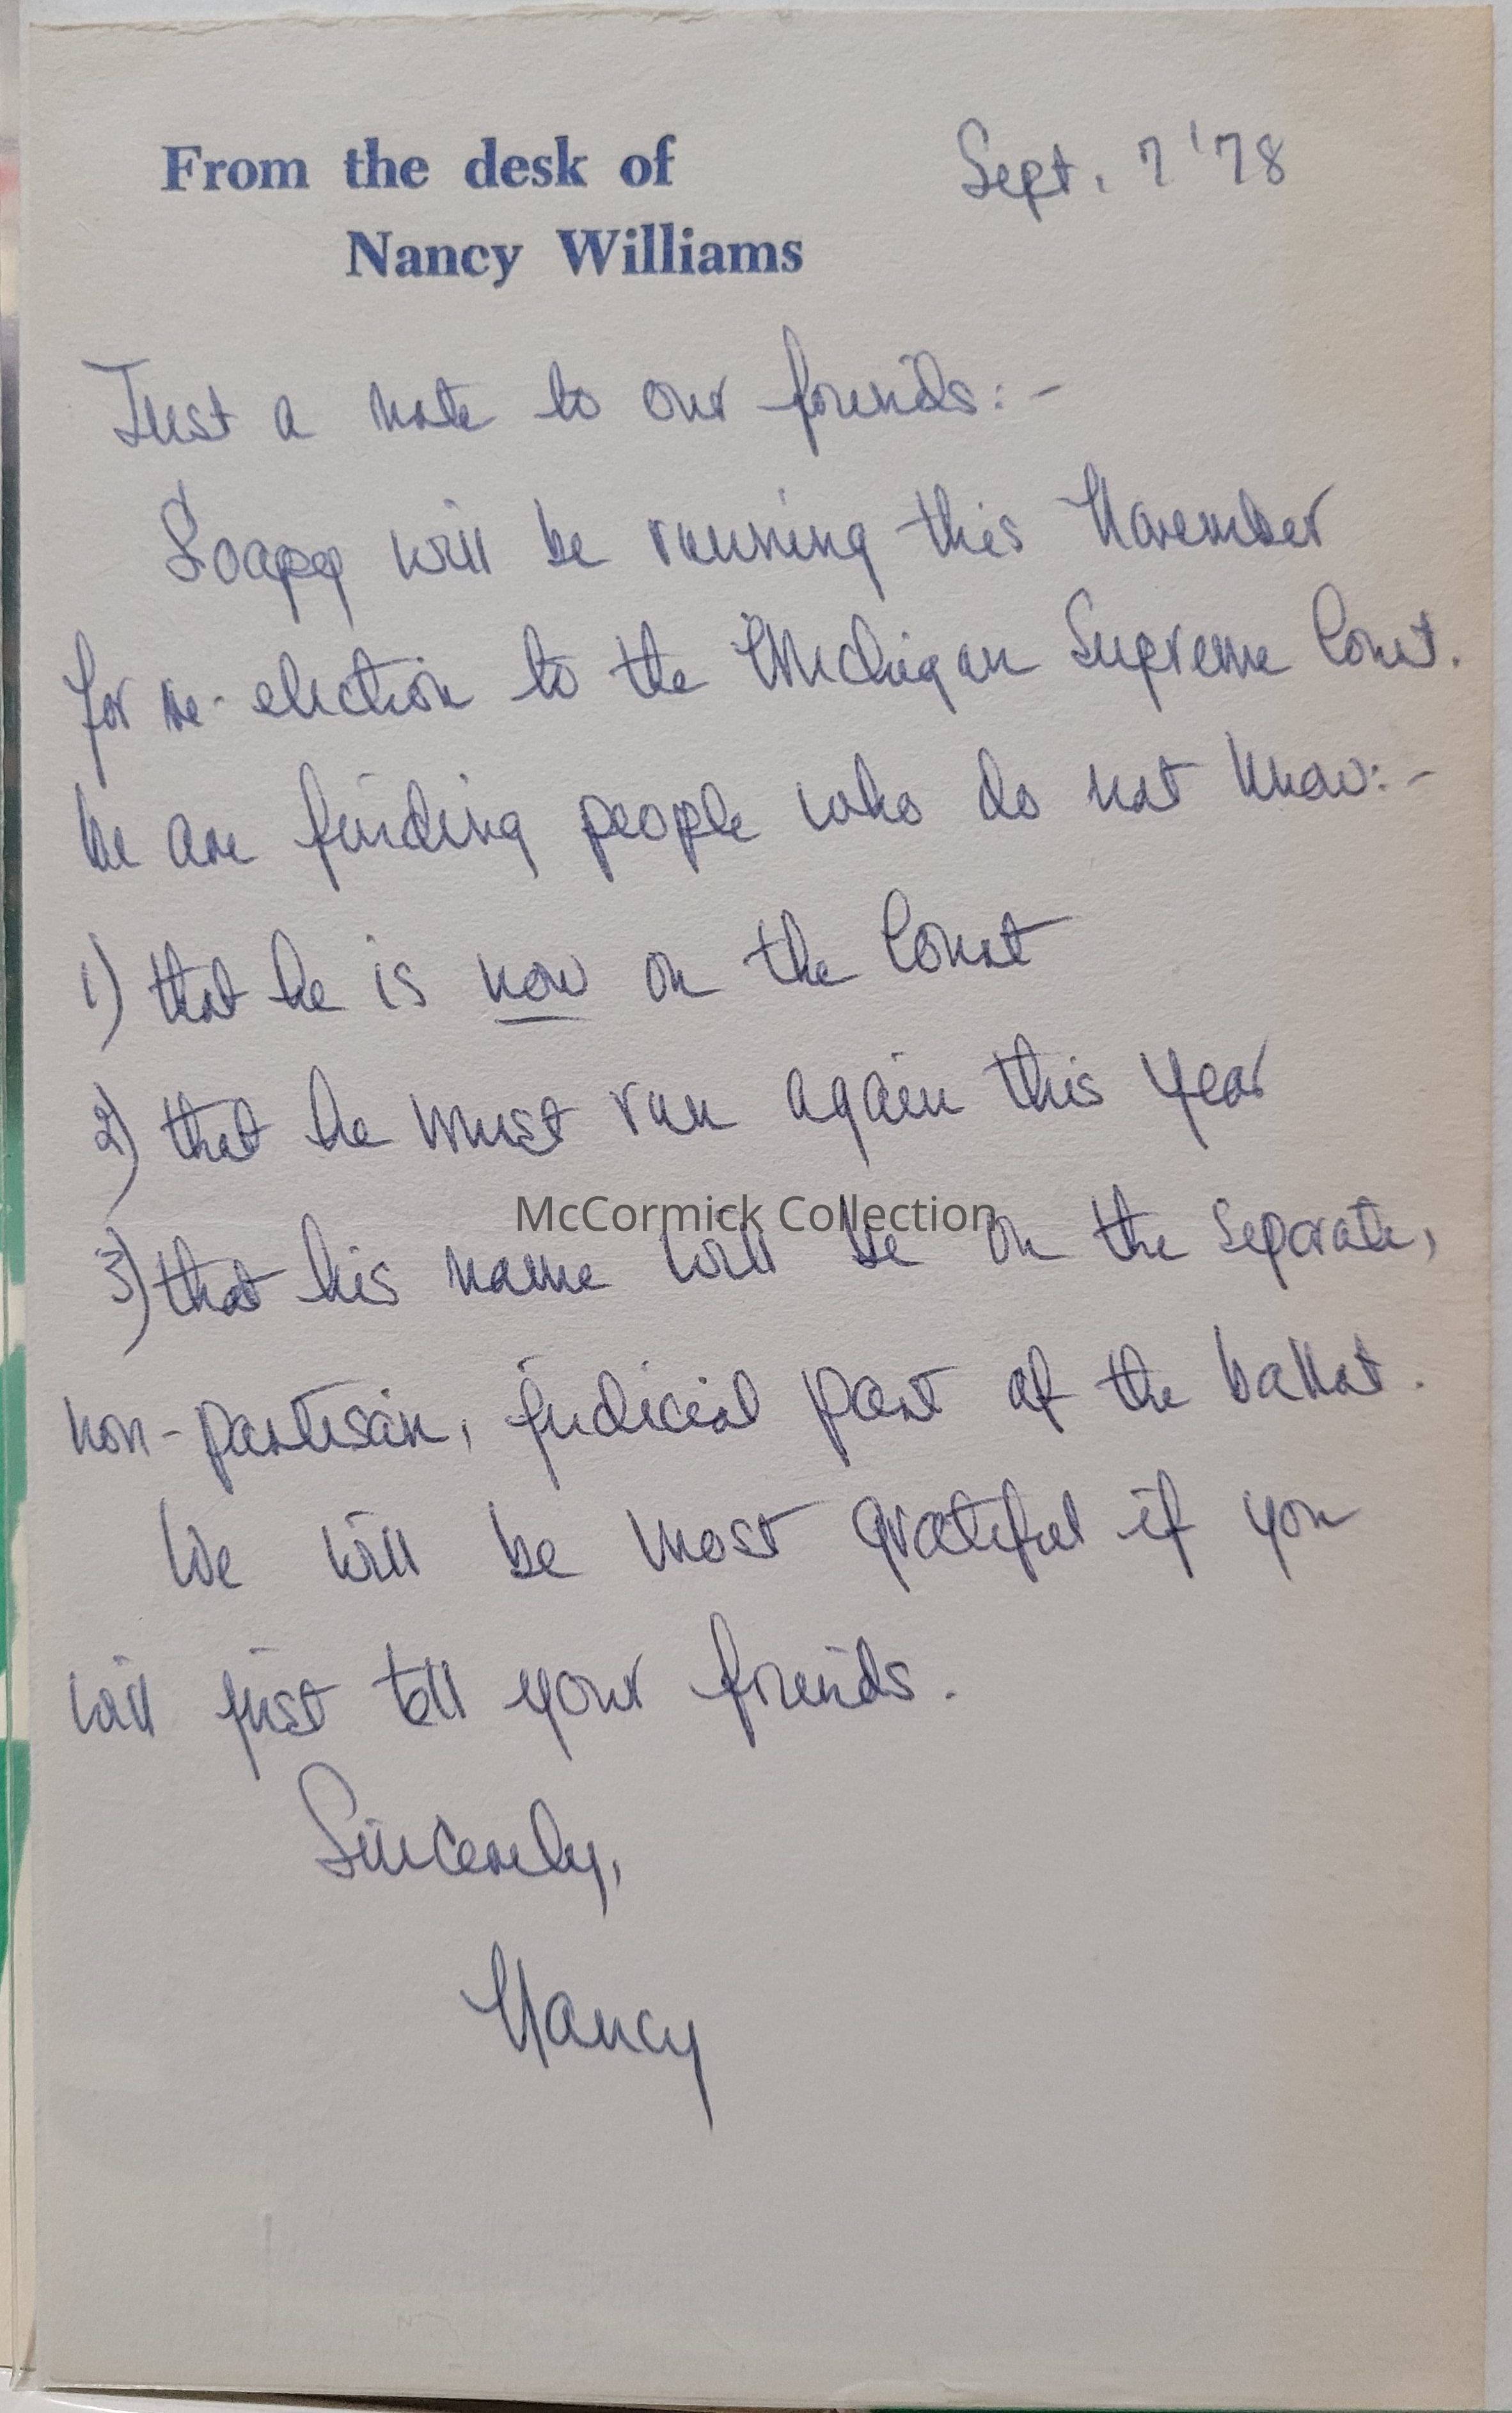 From the desk of
Nancy Williams
Sept. 7 '78
Just a note to our friends:-
Soapy will be running this November
for re-election to the Michigan Supreme Court.
We are finding people who do not know:-
1) that he is now on the Court
2) that he must run again this year
McCormick Collection
3) that his name will be on the separate,
non-partisan, judicial part of the ballot.
We will be most grateful if you
will just tell your friends.
Sincerely,
Nancy